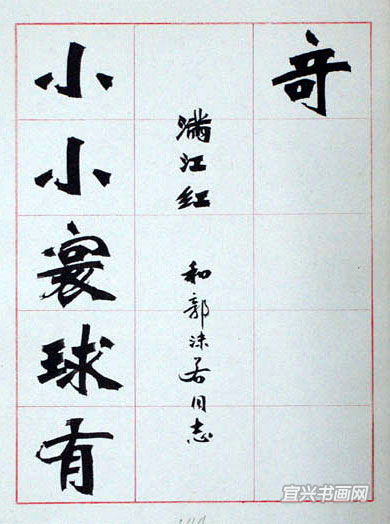 竒
满江红 和郭沫若同志
小小寰球有
宜兴书画网